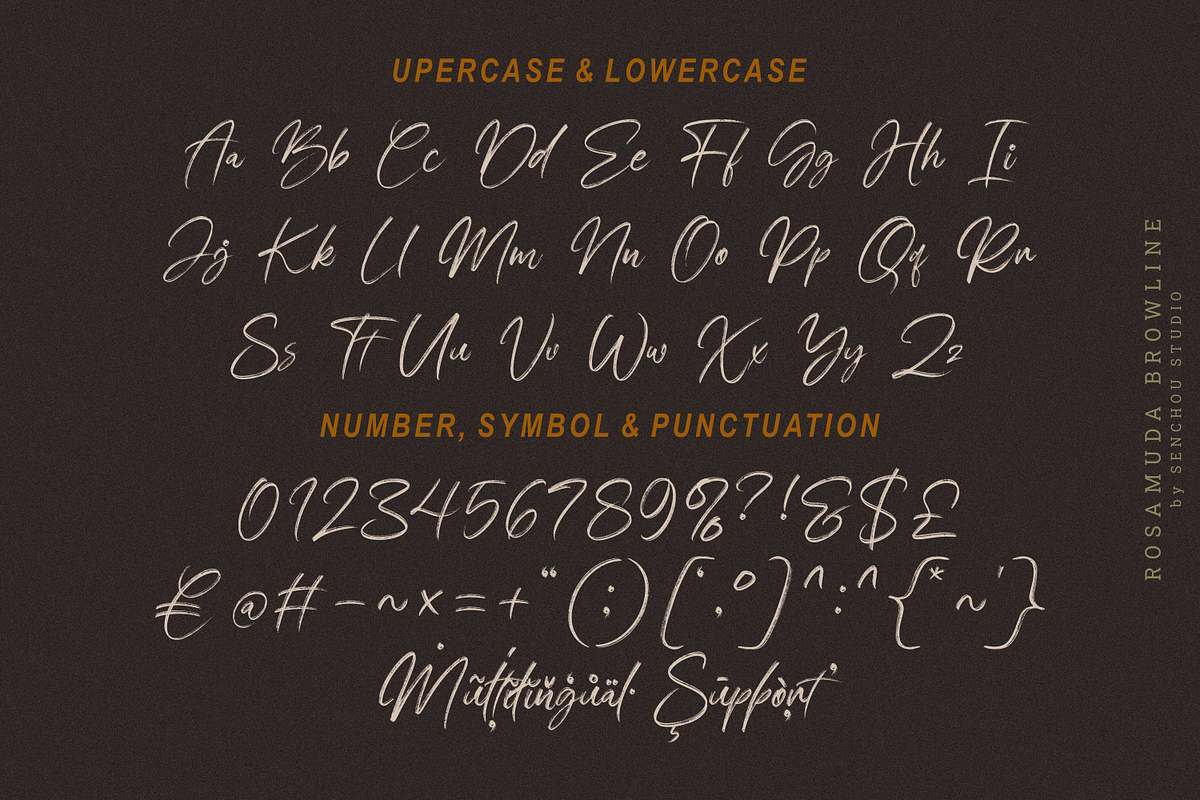 UPERCASE & LOWERCASE
Aa Bb Cc Dd Ee Ff Gg Hh Ii
Jj Kk Ll Mm Nn Oo Pp Qq Rr
Ss Tt Uu Vv Ww Xx Yy Zz
NUMBER, SYMBOL & PUNCTUATION
0123456789%?!&$£
€@#-~×=+“(;)[‘,°]^:^{*~'}
Support
ROSAMUDA BROWLINE
by SENCHOU STUDIO